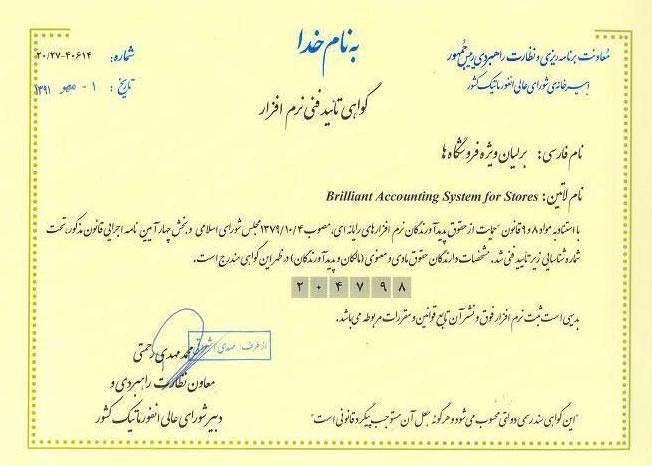 به نام خدا
معاونت برنامه ریزی و نظارت راهبردی رییس جمهور
دبیرخانه‌ی شورای عالی انفورماتیک کشور
شماره: ۲۰/۲۷-۴۰۶۱۴
تاریخ: ۱ - مهر ۱۳۹۱
گواهی تائید فنی نرم افزار
نام فارسی: برلیان ویژه فروشگاه ها
نام لاتین: Brilliant Accounting System for Stores
با استناد به مواد ۸ و ۹ قانون "حمایت از حقوق پدیدآورندگان نرم افزارهای رایانه ای، مصوب ۱۳۷۹/۱۰/۴ مجلس شورای اسلامی و بخش چهار آیین نامه اجرایی قانون مذکور، تحت
شماره شناسایی زیر تایید فنی شد. مشخصات دارندگان حقوق مادی و معنوی (مالکان و پدیدآورندگان) در ظهر این گواهی مندرج است.
۲۰۴۷۹۸
بدیهی است ثبت نرم افزار فوق و نشر آن تابع قوانین و مقررات مربوطه می‌باشد.
از طرف: مهدی
محمد مهدی رحمتی
معاون نظارت راهبردی و
دبیر شورای عالی انفورماتیک کشور
"این گواهی سند رسمی دولتی محسوب می‌شود و هرگونه جعل آن مستوجب پیگرد قانونی است"